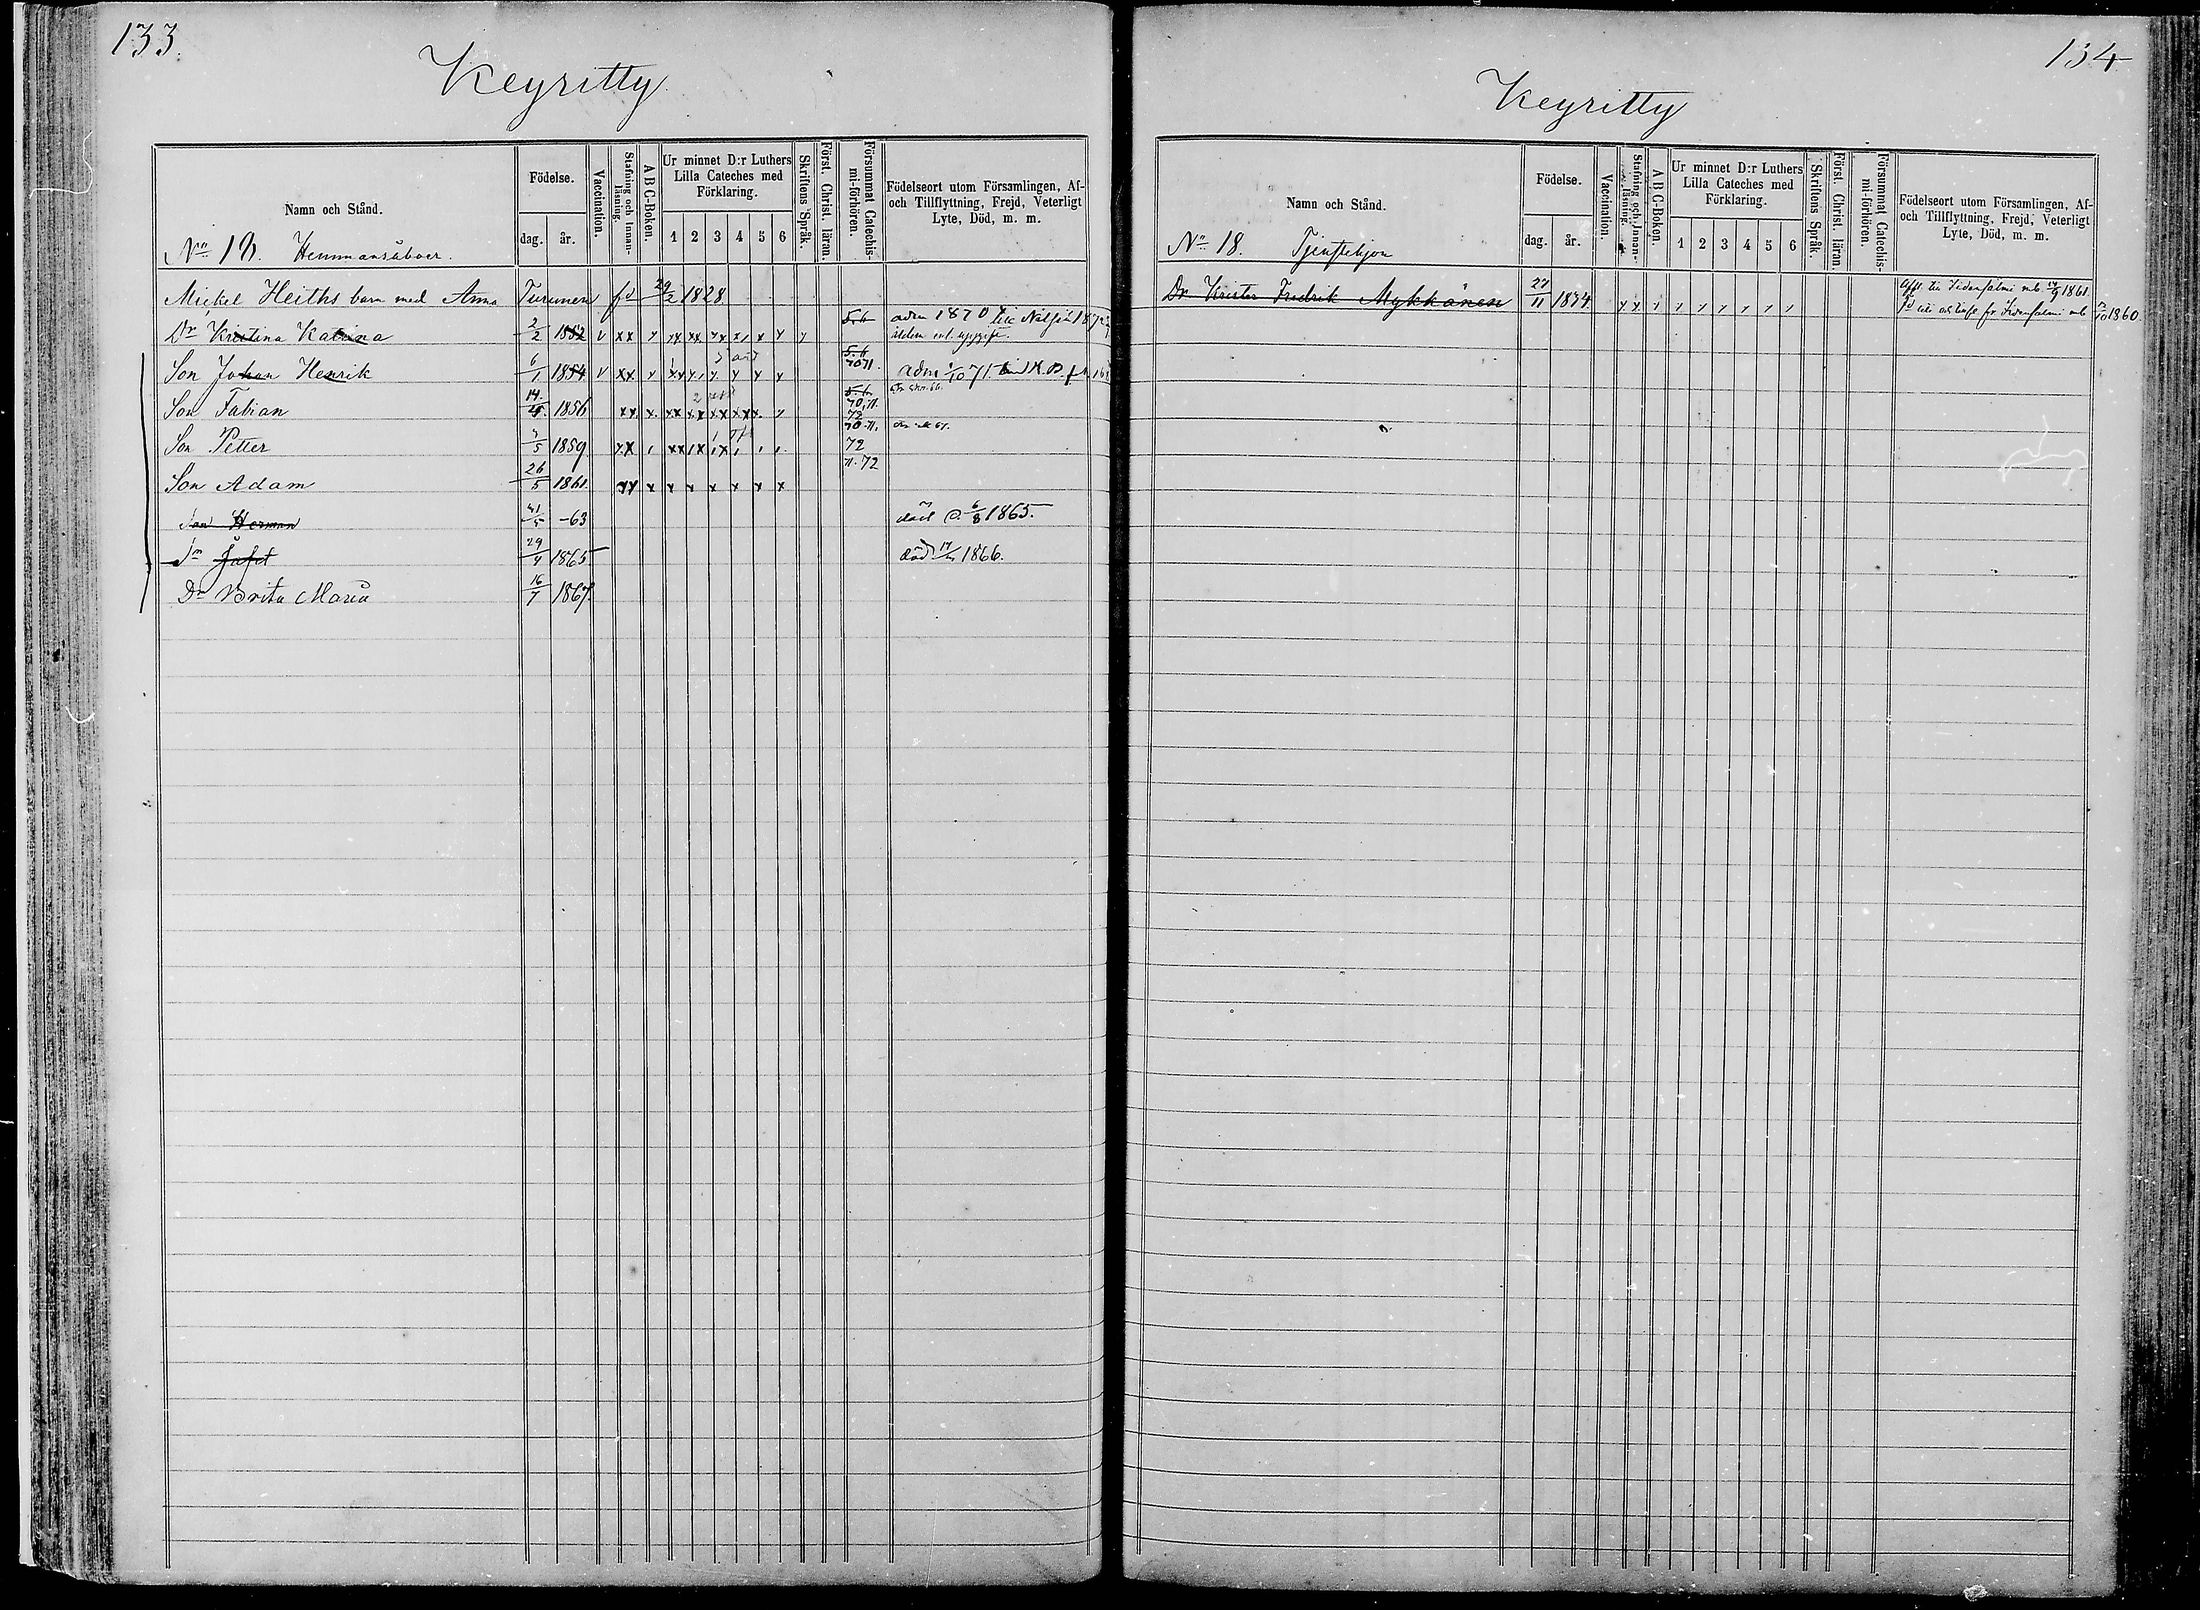 133.
Keyritty
Namn och Stånd.
Födelse.
dag.
år.
Vaccination.
Stafning och Innan-läsning.
A B C-Boken.
Ur minnet D:r Luthers Lilla Cateches med Förklaring.
1 2 3 4 5 6
Skriftens Språk.
Först. Christ. läran.
Försummat Catechis-mi-förhören.
Födelseort utom Församlingen, Af- och Tillflyttning, Frejd, Veterligt Lyte, Död, m. m.
No 18. Hemmansåboer.
Mickel Heiths barn med Anna Turunen fd 29/2 1828
Dr Kristina Katrina 2/2 1852 v xx adm 1870 till Nilsiä 187
Son Johan Henrik 6/1 1854 v xx 70 71. adm 1/10 71
Son Fabian 14/4 1856 xx x 70, 71. 72
Son Petter 5 1859 70. 71. 72
Son Adam 26/5 1861. 71. 72
Son Herman 5 -63 död d. 6/8 1865.
Sn Jafet 29/4 1865 död 1866.
Dr Brita Maria 16/7 1867.
134
Keyritty
Namn och Stånd.
Födelse.
dag.
år.
Vaccination.
Stafning och Innan-läsning.
A B C-Boken.
Ur minnet D:r Luthers Lilla Cateches med Förklaring.
1 2 3 4 5 6
Skriftens Språk.
Först. Christ. läran.
Försummat Catechis-mi-förhören.
Födelseort utom Församlingen, Af- och Tillflyttning, Frejd, Veterligt Lyte, Död, m. m.
No 18. Tjenstehjon
Dr Krister Fredrik Mykkänen 27/11 1834 Afft. till Idensalmi mb 9 1861.
fr. Idensalmi mb 10 1860.